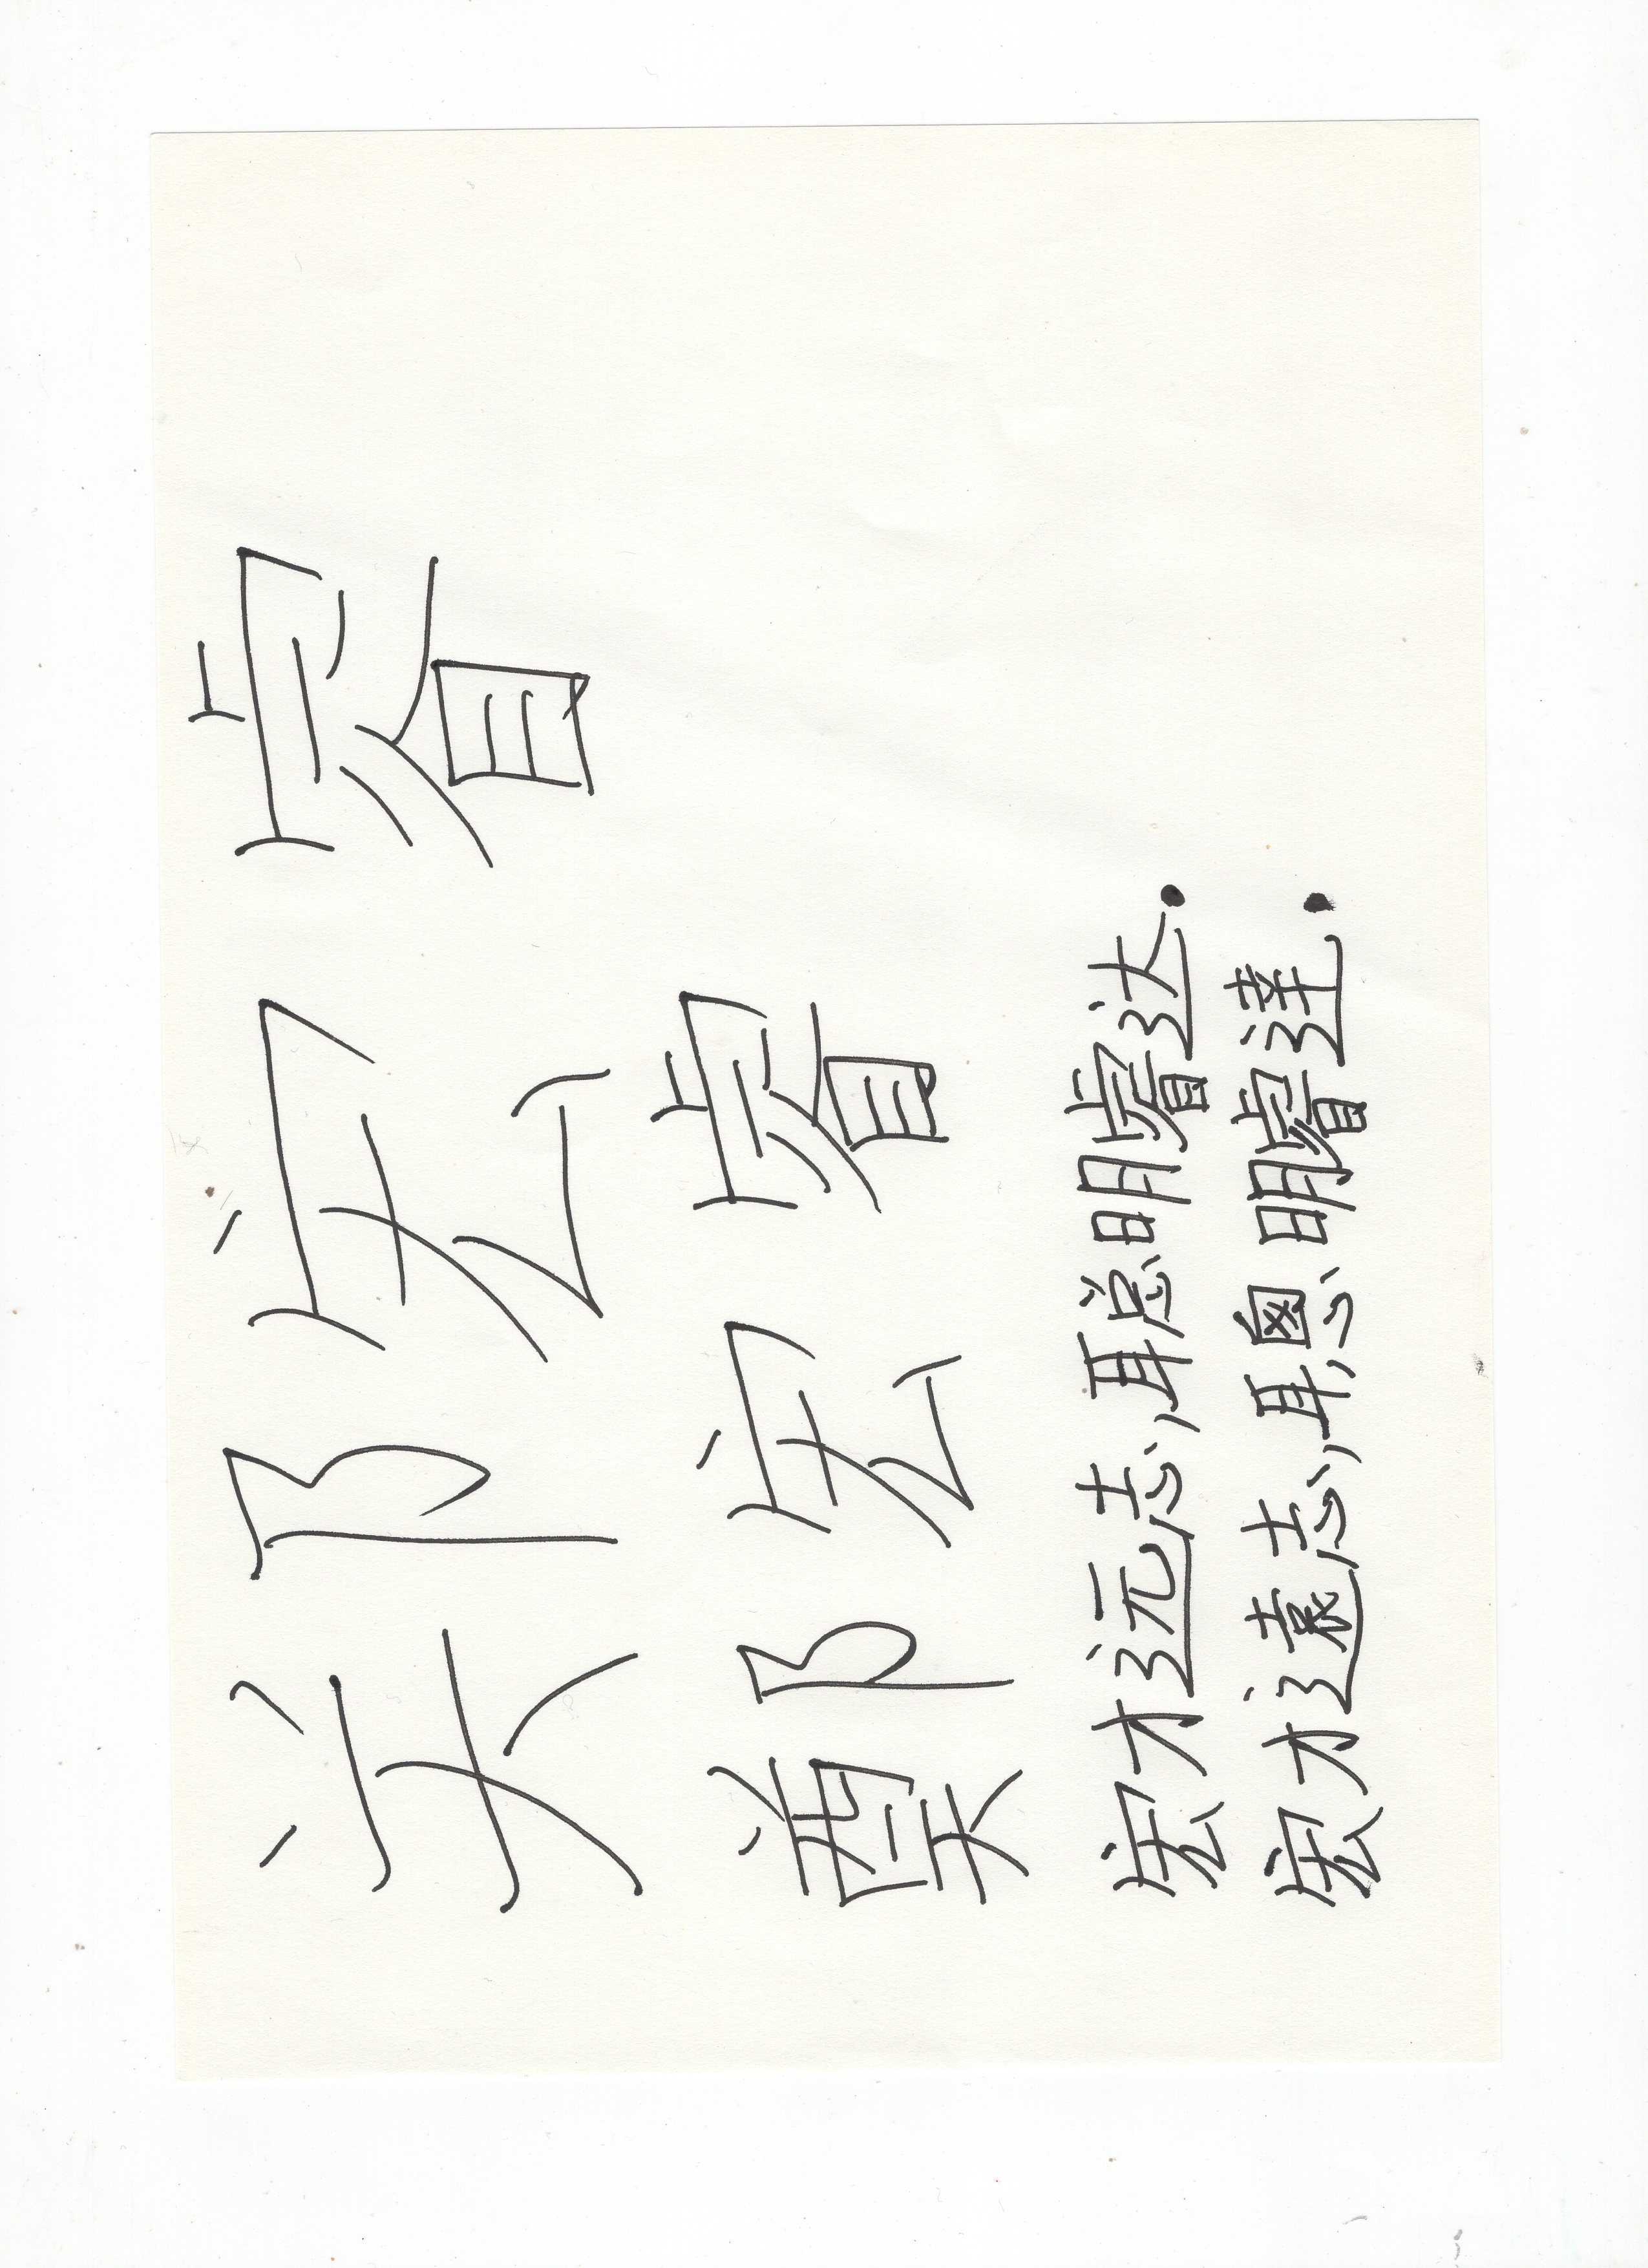 郑宏睿
鄭宏睿
宏才远志,聪明睿达.
宏才遠志,聰明睿達.